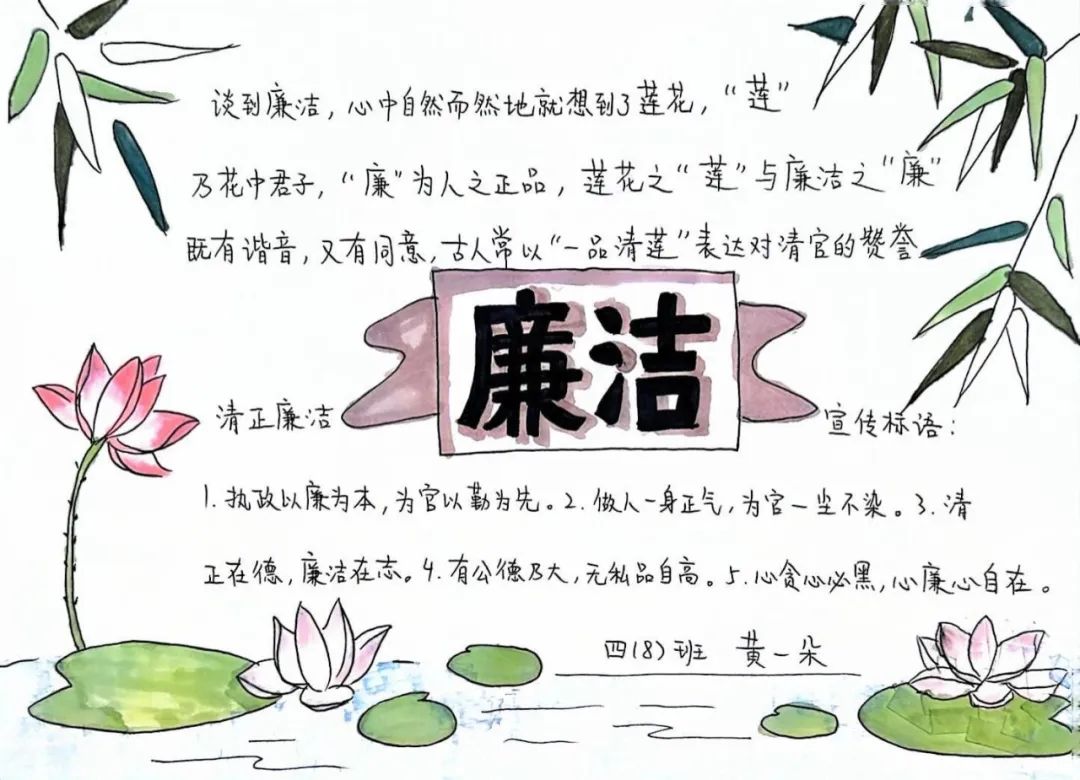 谈到廉洁，心中自然而然地就想到了莲花，“莲”
乃花中君子，“廉”为人之正品，莲花之“莲”与廉洁之“廉”
既有谐音，又有同意，古人常以“一品清莲”表达对清官的赞誉
廉洁
清正廉洁
宣传标语：
1.执政以廉为本，为官以勤为先。2.做人一身正气，为官一尘不染。3.清
正在德，廉洁在志。4.有公德乃大，无私品自高。5.心贪心必黑，心廉心自在。
四(8)班 黄一朵